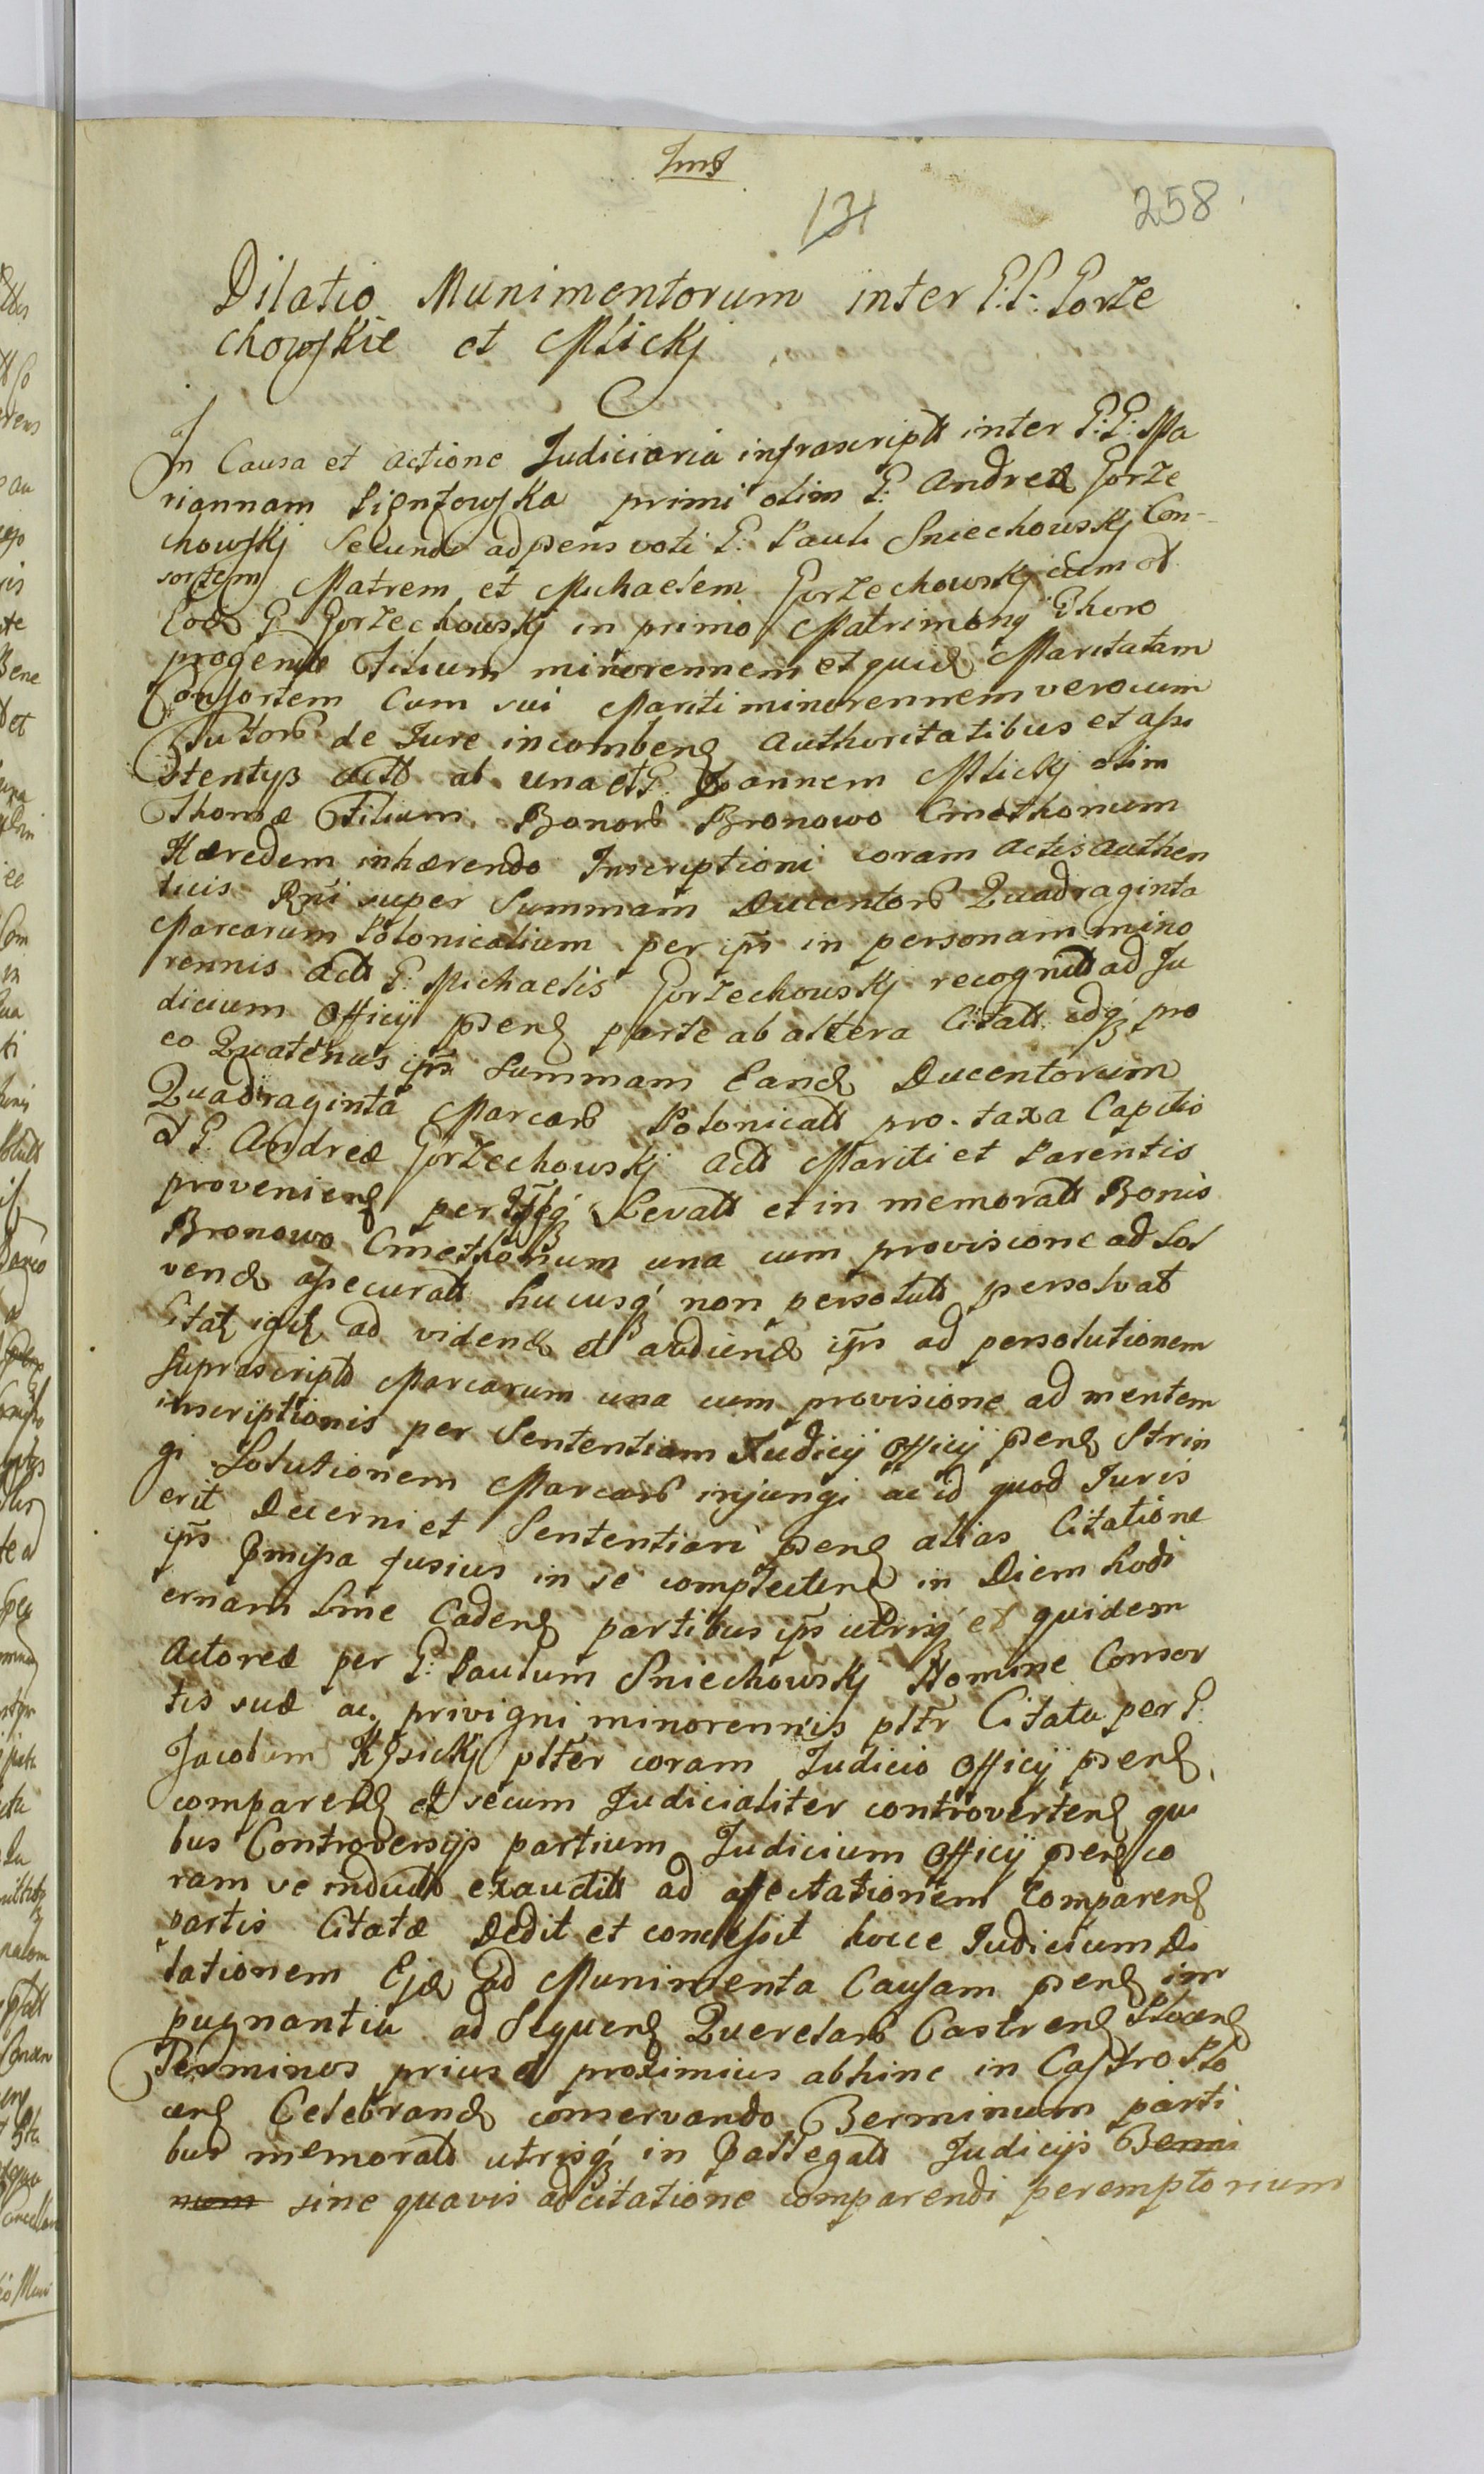 131
258
Dilatio Munimentorum inter G: G: Gorze
chowskie et Mlickj
In Causa et actione Judiciaria infrascriptt inter G: G: Ma
riannam primi olim G: Andreæ Gorze
chowskj Secundi adpræns voti G: Pauli Sniechowskj Con-
sortem Matrem et Michaelem Gorzechowskj cum
Eod G Gorzechowskj in primo Matrimony Thoro
progenit Filium minorennem et quid Maritatam
Consortem Cum sui Mariti minorennem vero cum
Tutor de Jure incomben authoritatibus et assi
stentijs actt ab una et G. Joannem Mlickj olim
Thomæ Filium Bonor Bronowo Cmethonum
Hæredem inhærendo Inscriptioni coram Actis authen
ticis Rni super Summam Ducentor Quadraginta
Marcarum Polonicalium per ips in personam mino
rennis actt G: Michaelis Gorzechowskj recognitt ad Ju
dicium Officij præn parte ab altera Citatt idq pro
eo Quatenus ips Summam Eand Ducentorum
Quadraginta Marcar Polonicatt pro taxa Capitis
G. Andreæ Gorzechowskj actt Mariti et Parentis
provenien per Levatt et in memoratt Bonis
Bronowo Cmethonum una cum provisione ad Sol
vend assecuratt hucusq non persolutt persolvat
Citat igit ad vidend et audiend ips ad persolutionem
suprascriptt Marcarum una cum provisione ad mentem
inscriptionis per Sententiam Judicij Officij præn Strin
gi Solutionem Marcar injungi ac id quod Juris
erit Decerni et Sententiari præn alias Citatione
ips præmissa fusius in se complecten in Diem hodi
ernam Caden partibus ips utrisq et quidem
Actorea per G: Paulum Sniechowskj Nomine Consor
tis suæ ac privigni minorennis pltr Citata per G.
Jacobum plter coram Judicio Officij præn
comparen et secum Judicialiter controverten qui
bus Controversijs partium Judicium Officij præn co
ram se induct exauditt ad affectationem Comparen
partis Citatæ Dedit et concessit hocce Judicium Di
lationem Ejd ad Munimenta Causam præn im
pugnantia ad Sequen Querelar Castren Plocen
Terminos prius et proximius abhinc in Castro Plo
cen Celebrand conservando Terminum parti
bus memoratt utrisq in Judicijs Termi
num sine quavis adcitatione comparendi peremptorium